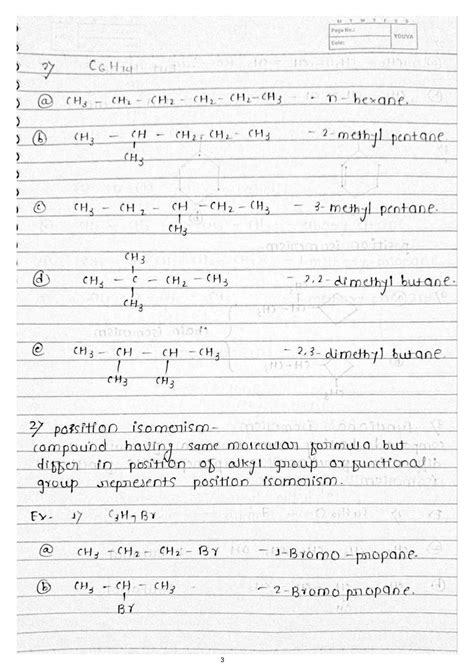 Page No.:
Date:
YOUVA
3) C6H14
(a) CH3 - CH2 - CH2 - CH2 - CH2 - CH3 - n-hexane.
(b) CH3 - CH - CH2 - CH2 - CH3 - 2-methyl pentane
CH3
(c) CH3 - CH2 - CH - CH2 - CH3 - 3-methyl pentane.
CH3
CH3
(d) CH3 - C - CH2 - CH3 - 2,2-dimethyl butane.
CH3
(e) CH3 - CH - CH - CH3 - 2,3-dimethyl butane.
CH3 CH3
2) possition isomerism-
compound having same molecular formula but
differ in position of alkyl group or functional
group represents position isomerism.
Ex- 1) C3H7Br
(a) CH3 - CH2 - CH2 - Br - 1-Bromo-propane.
(b) CH3 - CH - CH3 - 2-Bromo propane.
Br
3